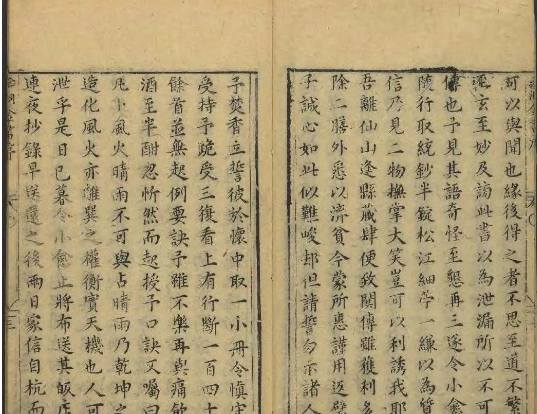 可以與聞也緣後得之者不思至道不繁
玄至妙及謫此書以為泄漏所以不可
傳也予見其語奇怪至懇再三遂令小禽
隨行取統鈔半錠松江細苧一縑以為贄
信乃見二物撫掌大笑豈可以利誘我耶
吾離仙山逢縣藏肆便致開傳雖獲利多
除二膳外悉以濟貧今蒙所惠謹用返璧
子誠心如此似難峻却但請誓勿示諸人
予焚香立誓彼於懷中取一小冊令慎守
受持予跪受三復看上有行斷一百四十
餘首並無起例要訣予雖不樂再與痛飲
酒至半酣忽忻然而起授予口訣又囑曰
凡小風火晴雨不可與占晴雨乃乾坤之
造化風火亦離巽之權衡實天機也人可
泄乎是日已暮令小禽止將布送其飯店
連夜抄錄早送還之後兩日家信自杭而